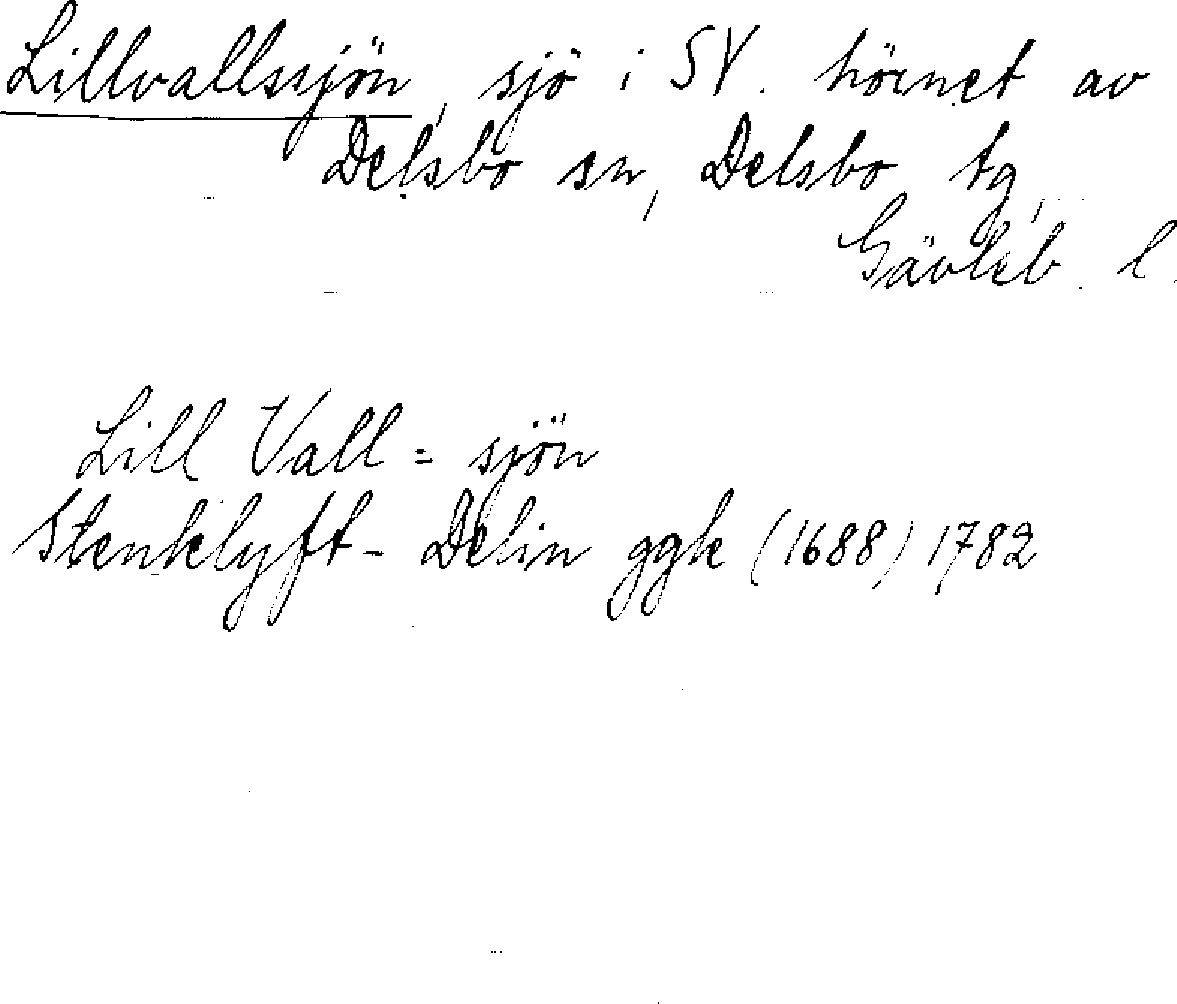 Lillvallssjön, sjö i SV. hörnet av
Delsbo sn, Delsbo tg,
Gävleb. l.
Lill Vall = sjön
Stenklyft - Delin ggk (1688) 1782